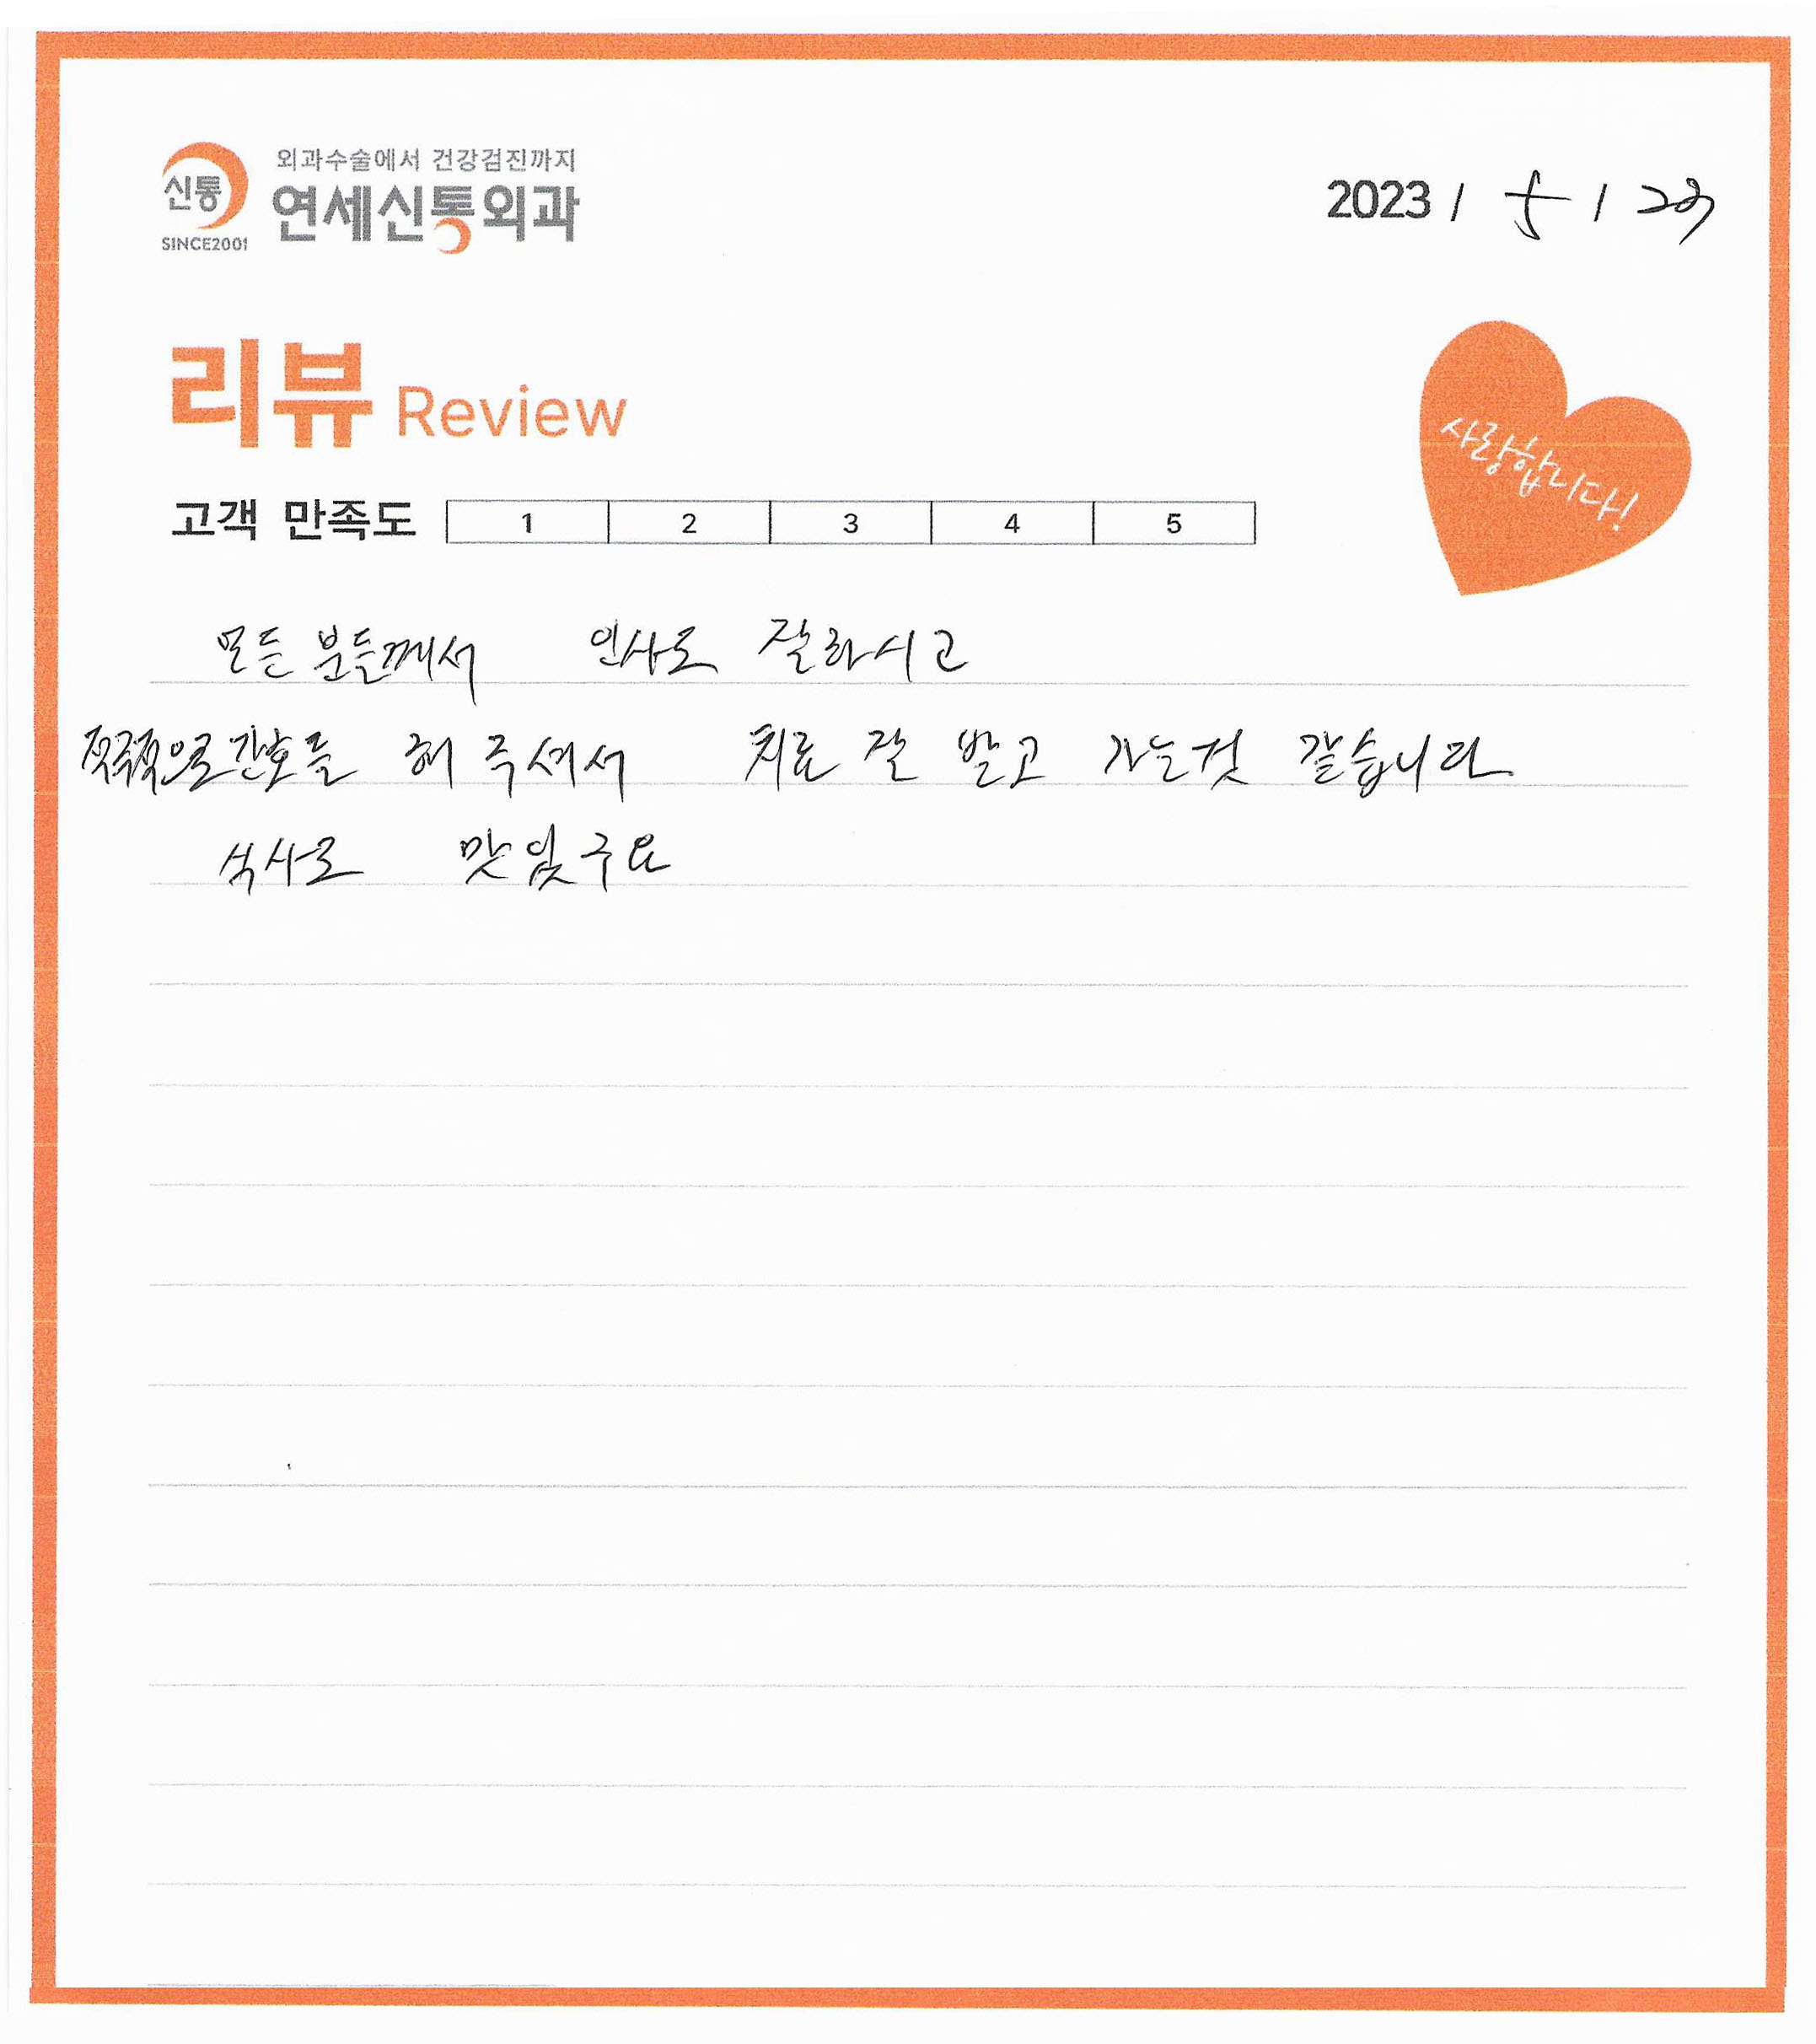 외과수술에서 건강검진까지
신통 연세신통외과
SINCE2001
2023 / 5 /
리뷰 Review
사랑합니다!
고객 만족도 1 2 3 4 5
모든 분들께서 인사도 잘하시고
적극적으로 간호를 해 주셔서 치료 잘 받고 가는것 같습니다
식사도 맛있구요